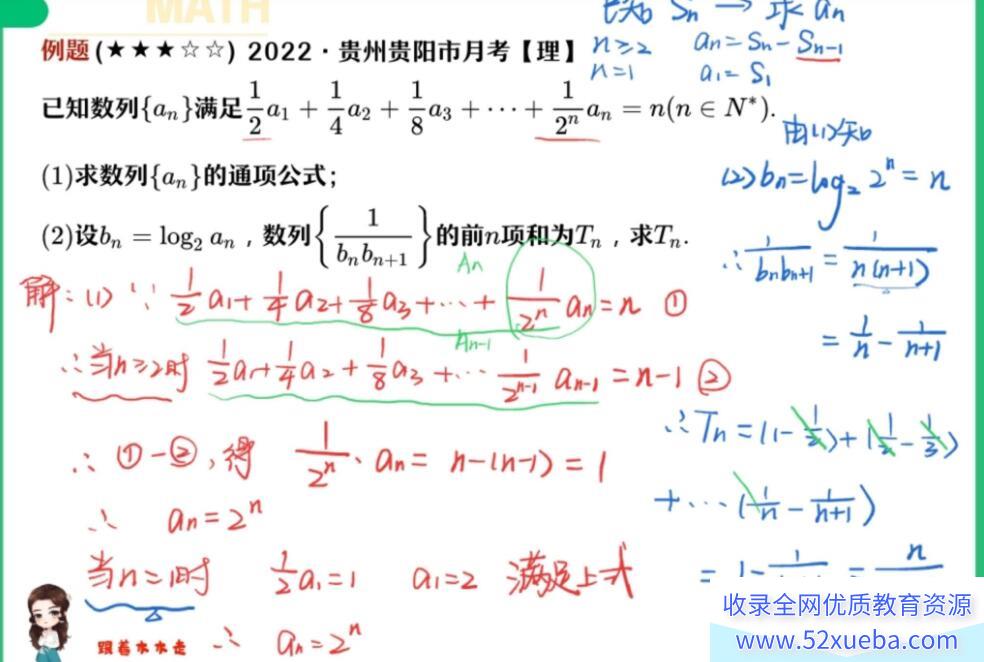 MATH
例题(★★★☆☆) 2022·贵州贵阳市月考【理】
已知数列{aₙ}满足1/2 a₁ + 1/4 a₂ + 1/8 a₃ + ··· + 1/2ⁿ aₙ = n(n ∈ N*).
(1)求数列{aₙ}的通项公式;
(2)设bₙ = log₂ aₙ , 数列{1/(bₙbₙ₊₁)}的前n项和为Tₙ , 求Tₙ.
已知 Sₙ → 求 aₙ
n≥2 aₙ = Sₙ - Sₙ₋₁
n=1 a₁ = S₁
解: (1) ∵ 1/2 a₁ + 1/4 a₂ + 1/8 a₃ + ··· + 1/2ⁿ aₙ = n ①
Aₙ
∴当n≥2时 1/2 a₁ + 1/4 a₂ + 1/8 a₃ + ··· 1/2ⁿ⁻¹ aₙ₋₁ = n-1 ②
Aₙ₋₁
∴ ①-②, 得 1/2ⁿ · aₙ = n-(n-1) = 1
∴ aₙ = 2ⁿ
当n=1时 1/2 a₁ = 1 a₁ = 2 满足上式
∴ aₙ = 2ⁿ
由(1)知
(2) bₙ = log₂ 2ⁿ = n
∴ 1/(bₙbₙ₊₁) = 1/(n(n+1))
= 1/n - 1/(n+1)
∴ Tₙ = (1 - 1/2) + (1/2 - 1/3)
+ ··· (1/n - 1/(n+1))
= 1 - 1/ = n/
跟着水水走
收录全网优质教育资源
www.52xueba.com